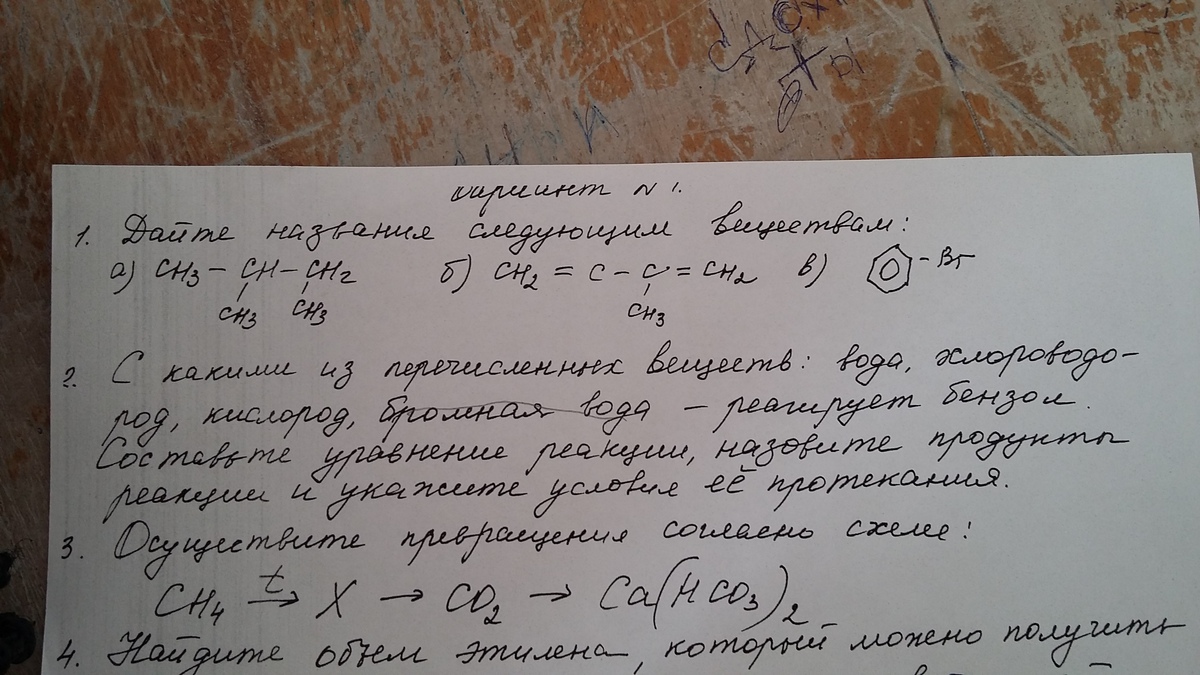 вариант N 1.
1. Дайте названия следующим веществам:
а) CH3 – CH – CH2 б) CH2 = C – C = CH2 в) – Br
CH3 CH3 CH3
2. С какими из перечисленных веществ: вода, хлороводо-
род, кислород, бромная вода – реагирует бензол.
Составьте уравнение реакции, назовите продукты
реакции и укажите условия её протекания.
3. Осуществите превращения согласно схеме:
CH4 t→ X → CO2 → Ca(HCO3)2
4. Найдите объем этилена, который можно получить